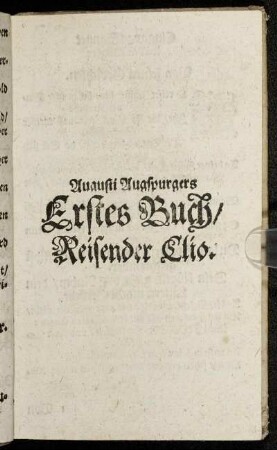 Augusti Augspurgers
Erstes Buch/
Reisender Clio.